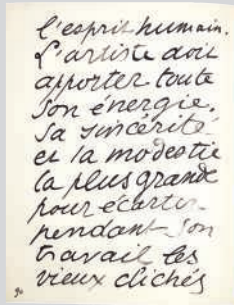 l'esprit humain.
L'artiste doit
apporter toute
son énergie.
sa sincérité
et la modestie
la plus grande
pour écarter
pendant son
travail les
vieux clichés
90